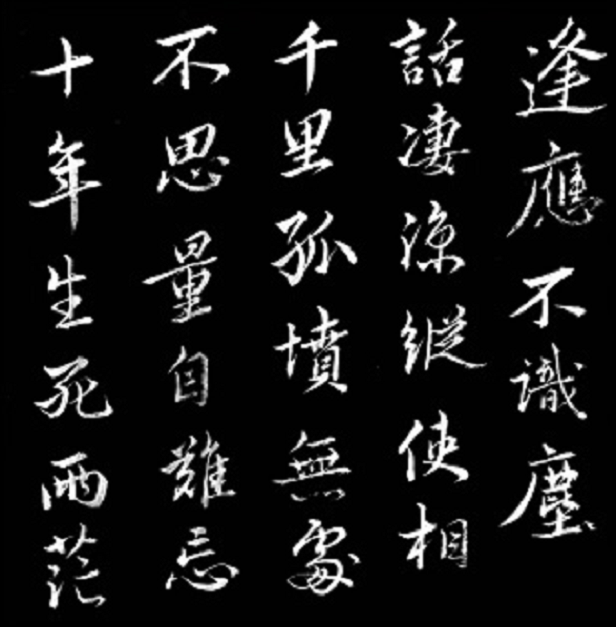 十年生死兩茫
不思量自難忘
千里孤墳無處
話凄涼縱使相
逢應不識塵